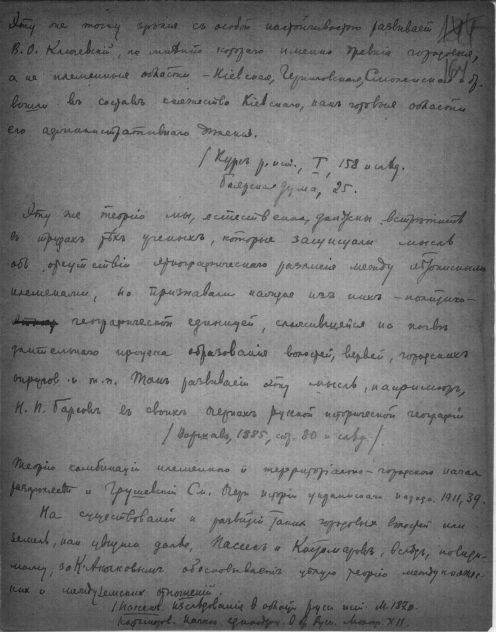 Эту же точку зрѣнія съ особой настойчивостью развиваетъ
В. О. Ключевскій, по мнѣнію котораго именно древнія городовыя,
а не племенныя области - Кіевская, Черниговская, Смоленская и др.
вошли въ составъ княжества Кіевскаго, какъ готовыя области
его административнаго дѣленія.
/ Курсъ р. ист., I, 158 и слѣд.
Боярская дума, 25.
Эту же теорію мы, естественно, должны встрѣтить
въ трудахъ тѣхъ ученыхъ, которые защищали мысль
объ отсутствіи этнографическаго различія между лѣтописными
племенами, но признавали каждое изъ нихъ - политико-
географической единицей, сложившейся на почвѣ
длительнаго процесса образованія волостей, вервей, городскихъ
округовъ и т.п. Такъ развиваетъ эту мысль, напримѣръ,
Н. П. Барсовъ въ своихъ Очеркахъ русской исторической географіи
/ Варшава, 1885, стр. 80 и слѣд /
Теорію комбинаціи племенного и территоріально-городского начал
и Грушевскій См. Очерк исторіи украинскаго народа. 1911, 39.
На существованіи и развитіи такихъ городовыхъ волостей или
земель, какъ увидимъ далѣе, Пассекъ и Костомаровъ, вслѣдъ, повиди-
мому, за обосновываетъ цѣлую теорію междукняже-
скихъ и междуземскихъ отношеній.
/ Пассекъ изслѣдованія в области русск. ист. М 1870.
Костомаров. Начало единодерж. в др. Руси. Моногр. XII.